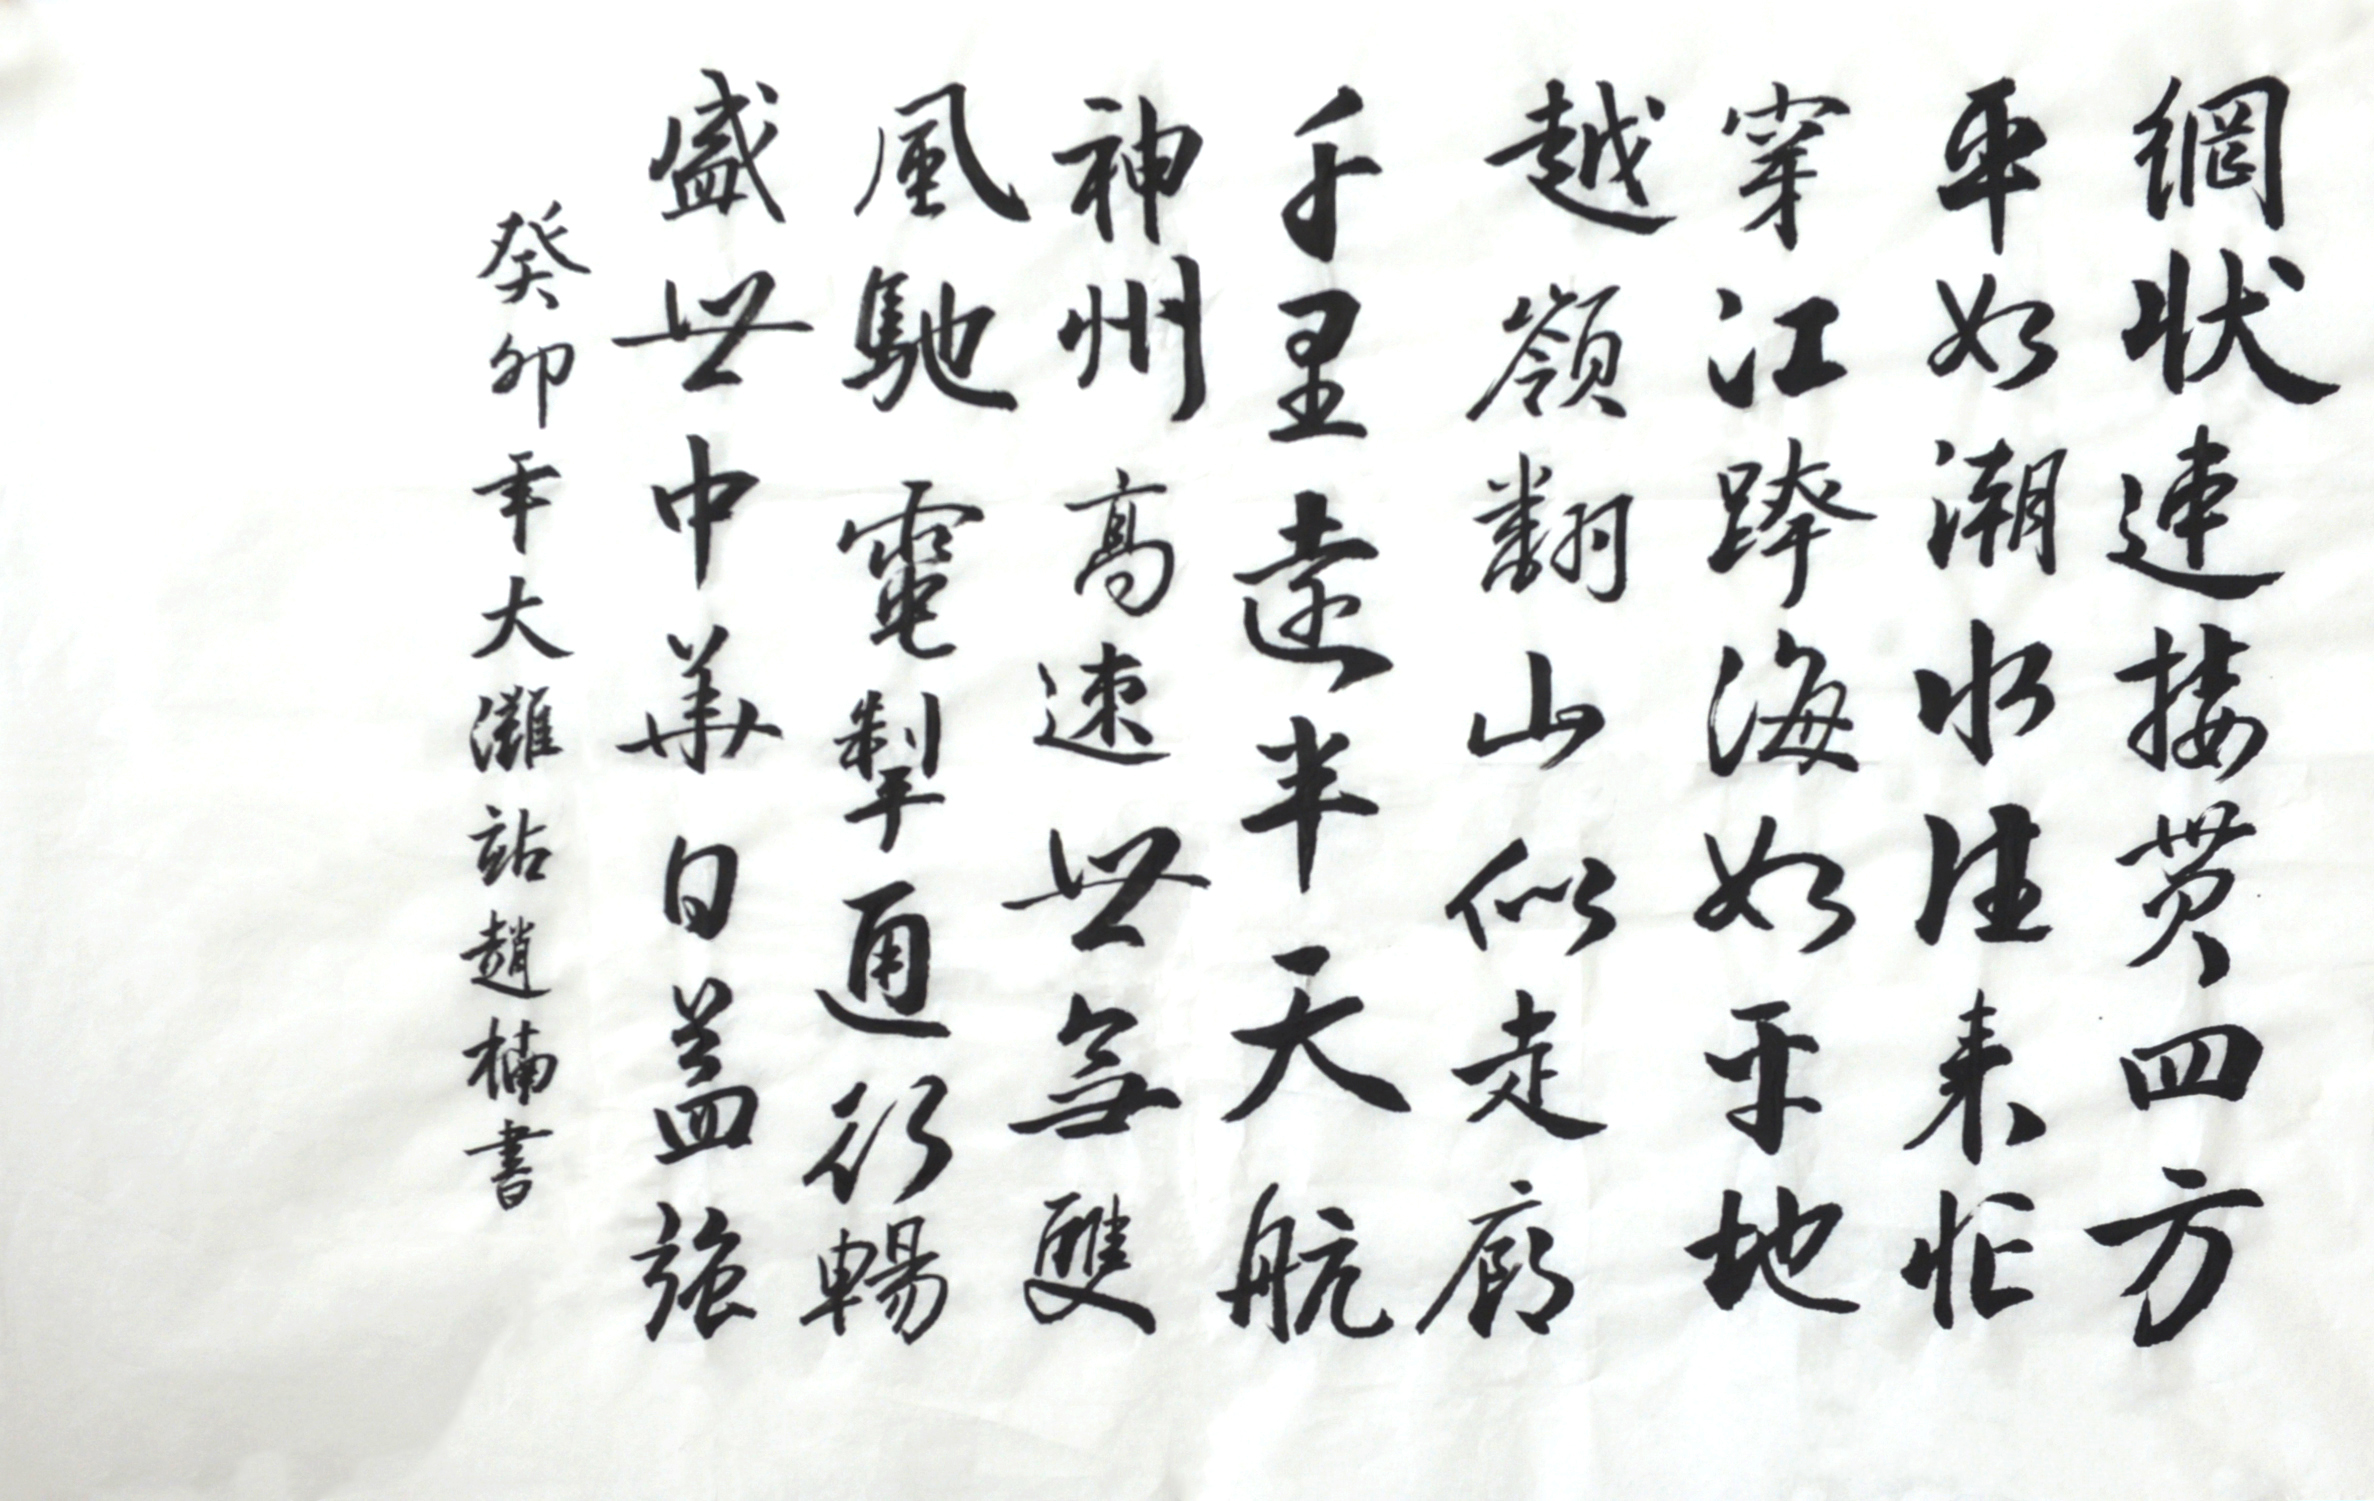 網狀連接贯四方
車如潮水往来忙
穿江跨海如平地
越嶺翻山似走廊
千里遠半天航
神州高速世無雙
風馳電掣通行暢
盛世中華日益強
癸卯年大灘站趙楠書